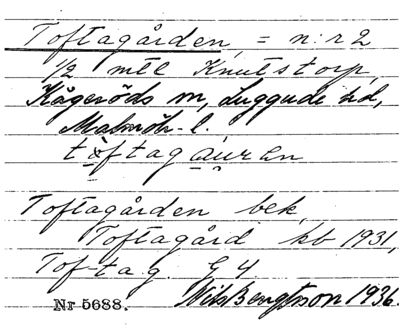 Toftagården = n:r 2
1/2 mtl Knutstorp,
Kågeröds sn, Luggude hd,
Malmöh. l.
Toftagården bek.
Toftagård kb 1931,
Tof-tag. G 4.
Nr 5688. Nils Bengtsson 1936.